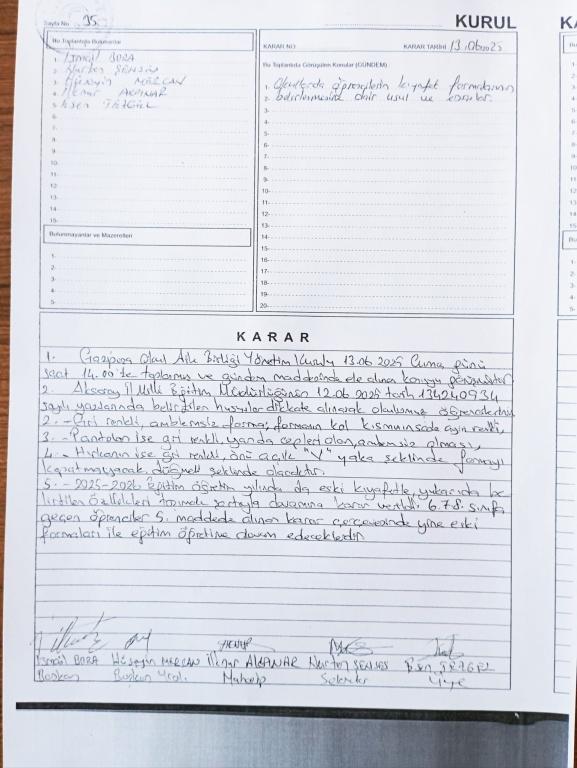 Sayfa No 35
KURUL
KA
Bu Toplantıda Bulunanlar
1. İsmail BORA
2. Nurten ŞENSES
3. Hüseyin MERCAN
4. İlknur AKPINAR
5.
6.
7.
8.
9.
10.
11.
12.
13.
14.
15.
Bulunmayanlar ve Mazeretleri
1.
2.
3.
4.
5.
KARAR NO:
KARAR TARİHİ 13.06.2025
Bu Toplantıda Görüşülen Konular (GÜNDEM)
1. Okullarda öğrencilerin kıyafet formalarının
2. belirlenmesine dair usul ve esaslar.
3.
4.
5.
6.
7.
8.
9.
10.
11.
12.
13.
14.
15.
16.
17.
18.
19.
20.
KARAR
1. Gazipaşa Okul Aile Birliği Yönetim Kurulu 13.06.2025 Cuma günü
saat 14.00'te toplanmış ve gündem maddesinde ele alınan konuyu görüşmüştür
2. Aksaray İl Milli Eğitim Müdürlüğünün 12.06.2025 tarih 134240934
sayılı yazılarında belirtilen hususlar dikkate alınarak okulumuz öğrencilerinin
2. - Gri renkli, amblemsiz forma, formanın kol kısmının sade aynı renkli,
3. - Pantolon ise gri renkli, yanda cepleri olan, amblemsiz olması,
4. - Hırkanın ise gri renkli, önü açık "V" yaka şeklinde formayı
kapatmayacak düğmeli şeklinde olacaktır.
5. - 2025-2026 Eğitim öğretim yılında da eski kıyafetle, yukarıda be
lirtilen özellikleri taşımak şartıyla devamına karar verildi. 6.7.8. sınıfa
geçen öğrenciler 5. maddede alınan karar çerçevesinde yine eski
formaları ile eğitim öğretime devam edeceklerdir.
İsmail BORA Hüseyin MERCAN İlknur AKPINAR Nurten ŞENSES
Başkan Başkan Yrd. Muhasip Sekreter Üye